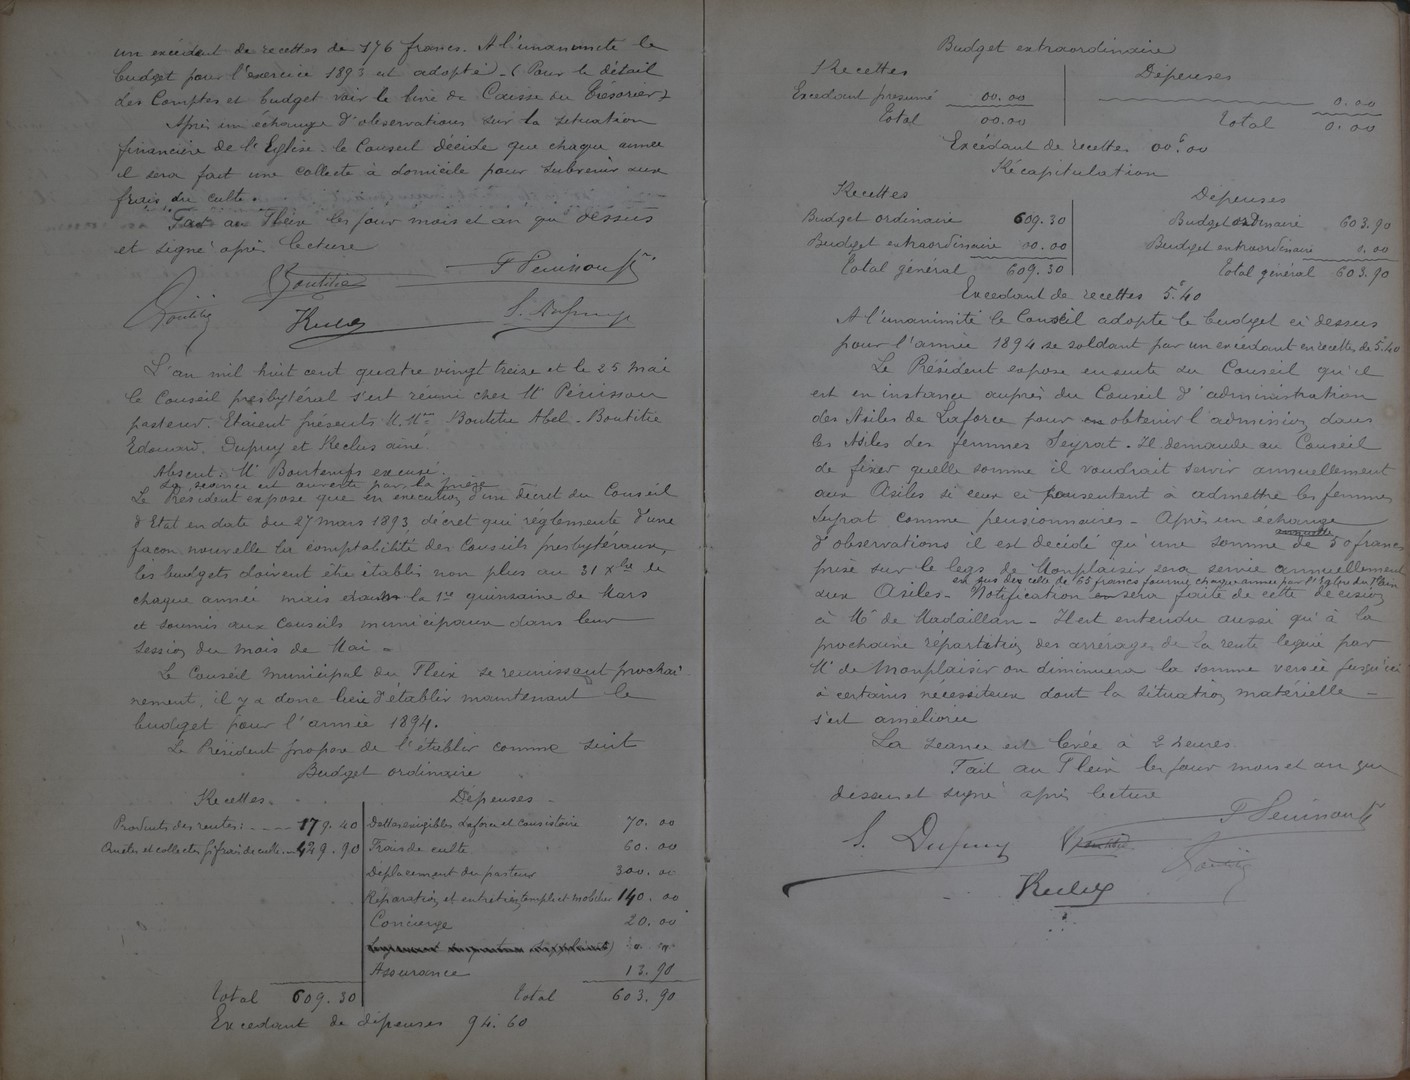 un excédent de recettes de 176 francs. A l'unanimité le
budget pour l'exercice 1893 est adopté. (Pour le détail
des Comptes et budget voir le livre de Caisse du Trésorier)
Après un échange d'observations sur la situation
financière de l'Eglise le Conseil décide que chaque année
il sera fait une collecte à domicile pour subvenir aux
frais du culte.
Fait au Fleix les jour mois et an que dessus
et signé après lecture
L'an mil huit cent quatre vingt treize et le 25 Mai
le Conseil presbytéral s'est réuni chez Mr Pénissou
pasteur. Etaient présents M.Mrs Boutitie Abel - Boutitie
Edouard. Dupuy et Reclus aîné.
Absent: Mr Bontemps excusé.
La séance est ouverte par la prière
Le Président expose que en exécution d'une décret du Conseil
d'Etat en date du 27 Mars 1893, décret qui réglemente d'une
façon nouvelle la comptabilité des Conseils presbytéraux,
les budgets doivent être établis non plus au 31 Xbre de
chaque année mais dans la 1re quinzaine de Mars
et soumis aux Conseils municipaux dans leur
session du mois de Mai -
Le Conseil municipal du Fleix se réunissant prochai
nement, il y a donc lieu d'établir maintenant le
budget pour l'année 1894.
Le Président propose de l'établir comme suit
Budget ordinaire
Recettes. Dépenses -
Produits des rentes: 179.40 Dettes exigibles Laforce et consistoire 70.00
Quêtes et collectes p. frais de culte 429.90 Frais de culte 60.00
Déplacement du pasteur 300.00
Réparation et entretien temple et mobilier 140.00
Concierge 20.00
Assurance 13.90
Total 609.30 Total 603.90
Excédant de dépenses 94.60
Budget extraordinaire
Recettes Dépenses
Excédant présumé 00.00 0.00
Total 00.00 Total 0.00
Excédant de recettes 00f.00
Récapitulation
Recettes Dépenses
Budget ordinaire 609.30 Budget ordinaire 603.90
Budget extraordinaire 00.00 Budget extraordinaire 0.00
Total général 609.30 Total général 603.90
Excédant de recettes 5f.40
A l'unanimité le Conseil adopte le budget ci dessus
pour l'année 1894 se soldant par un excédant en recettes de 5f.40
Le Président expose ensuite au Conseil qu'il
est en instance auprès du Conseil d'administration
des Asiles de Laforce pour obtenir l'admission dans
les Asiles des femmes Seyrat. Il demande au Conseil
de fixer quelle somme il voudrait servir annuellement
aux Asiles si ceux ci consentent à admettre les femmes
Seyrat comme pensionnaires - Après un échange
d'observations il est décidé qu'une somme de 50 francs
prise sur le legs de Monplaisir sera servie annuellement
en sus de celle de 65 francs fournie chaque année par l'Eglise du Fleix
aux Asiles - Notification sera faite de cette décision
à Mr de Madaillan - Il est entendu aussi qu'à la
prochaine répartition des arrérages de la rente léguée par
Mr de Monplaisir on diminuera la somme versée jusqu'ici
à certains nécessiteux dont la situation matérielle -
s'est améliorée
La séance est levée à 2 heures.
Fait au Fleix les jour mois et an que
dessus et signé après lecture
S. Dupuy